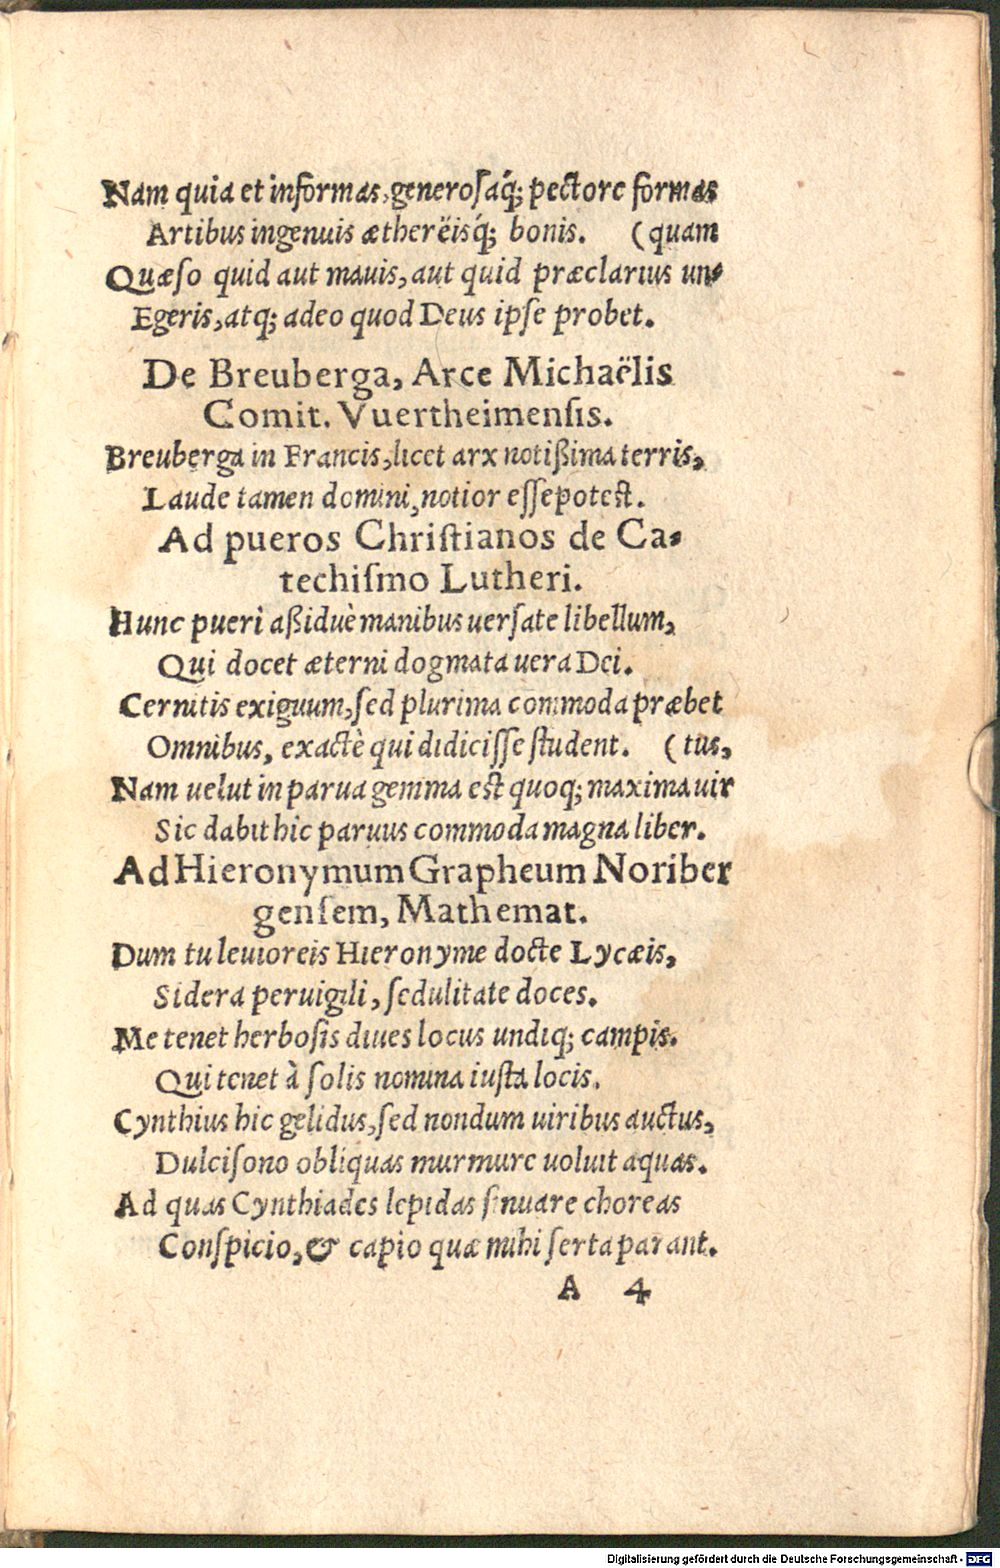 Nam quia et informas, generosaq́; pectore formas
Artibus ingenuis æthereïsq́; bonis. (quam
Quæso quid aut mauis, aut quid præclarius un-
Egeris, atq; adeo quod Deus ipse probet.
De Breuberga, Arce Michaëlis
Comit. Vuertheimensis.
Breuberga in Francis, licet arx notißima terris,
Laude tamen domini, notior esse potest.
Ad pueros Christianos de Ca-
techismo Lutheri.
Hunc pueri aßiduè manibus uersate libellum,
Qui docet æterni dogmata uera Dei.
Cernitis exiguum, sed plurima commoda præbet
Omnibus, exactè qui didicisse student. (tus,
Nam uelut in parua gemma est quoq; maxima uir
Sic dabit hic paruus commoda magna liber.
Ad Hieronymum Grapheum Noriber
gensem, Mathemat.
Dum tu leuioreis Hieronyme docte Lycæis,
Sidera peruigili, sedulitate doces.
Me tenet herbosis diues locus undiq; campis.
Qui tenet à solis nomina iusta locis.
Cynthius hic gelidus, sed nondum uiribus auctus,
Dulcisono obliquas murmure uoluit aquas.
Ad quas Cynthiades lepidas sinuare choreas
Conspicio, & capio quæ mihi serta parant.
A 4
Digitalisierung gefördert durch die Deutsche Forschungsgemeinschaft - DFG